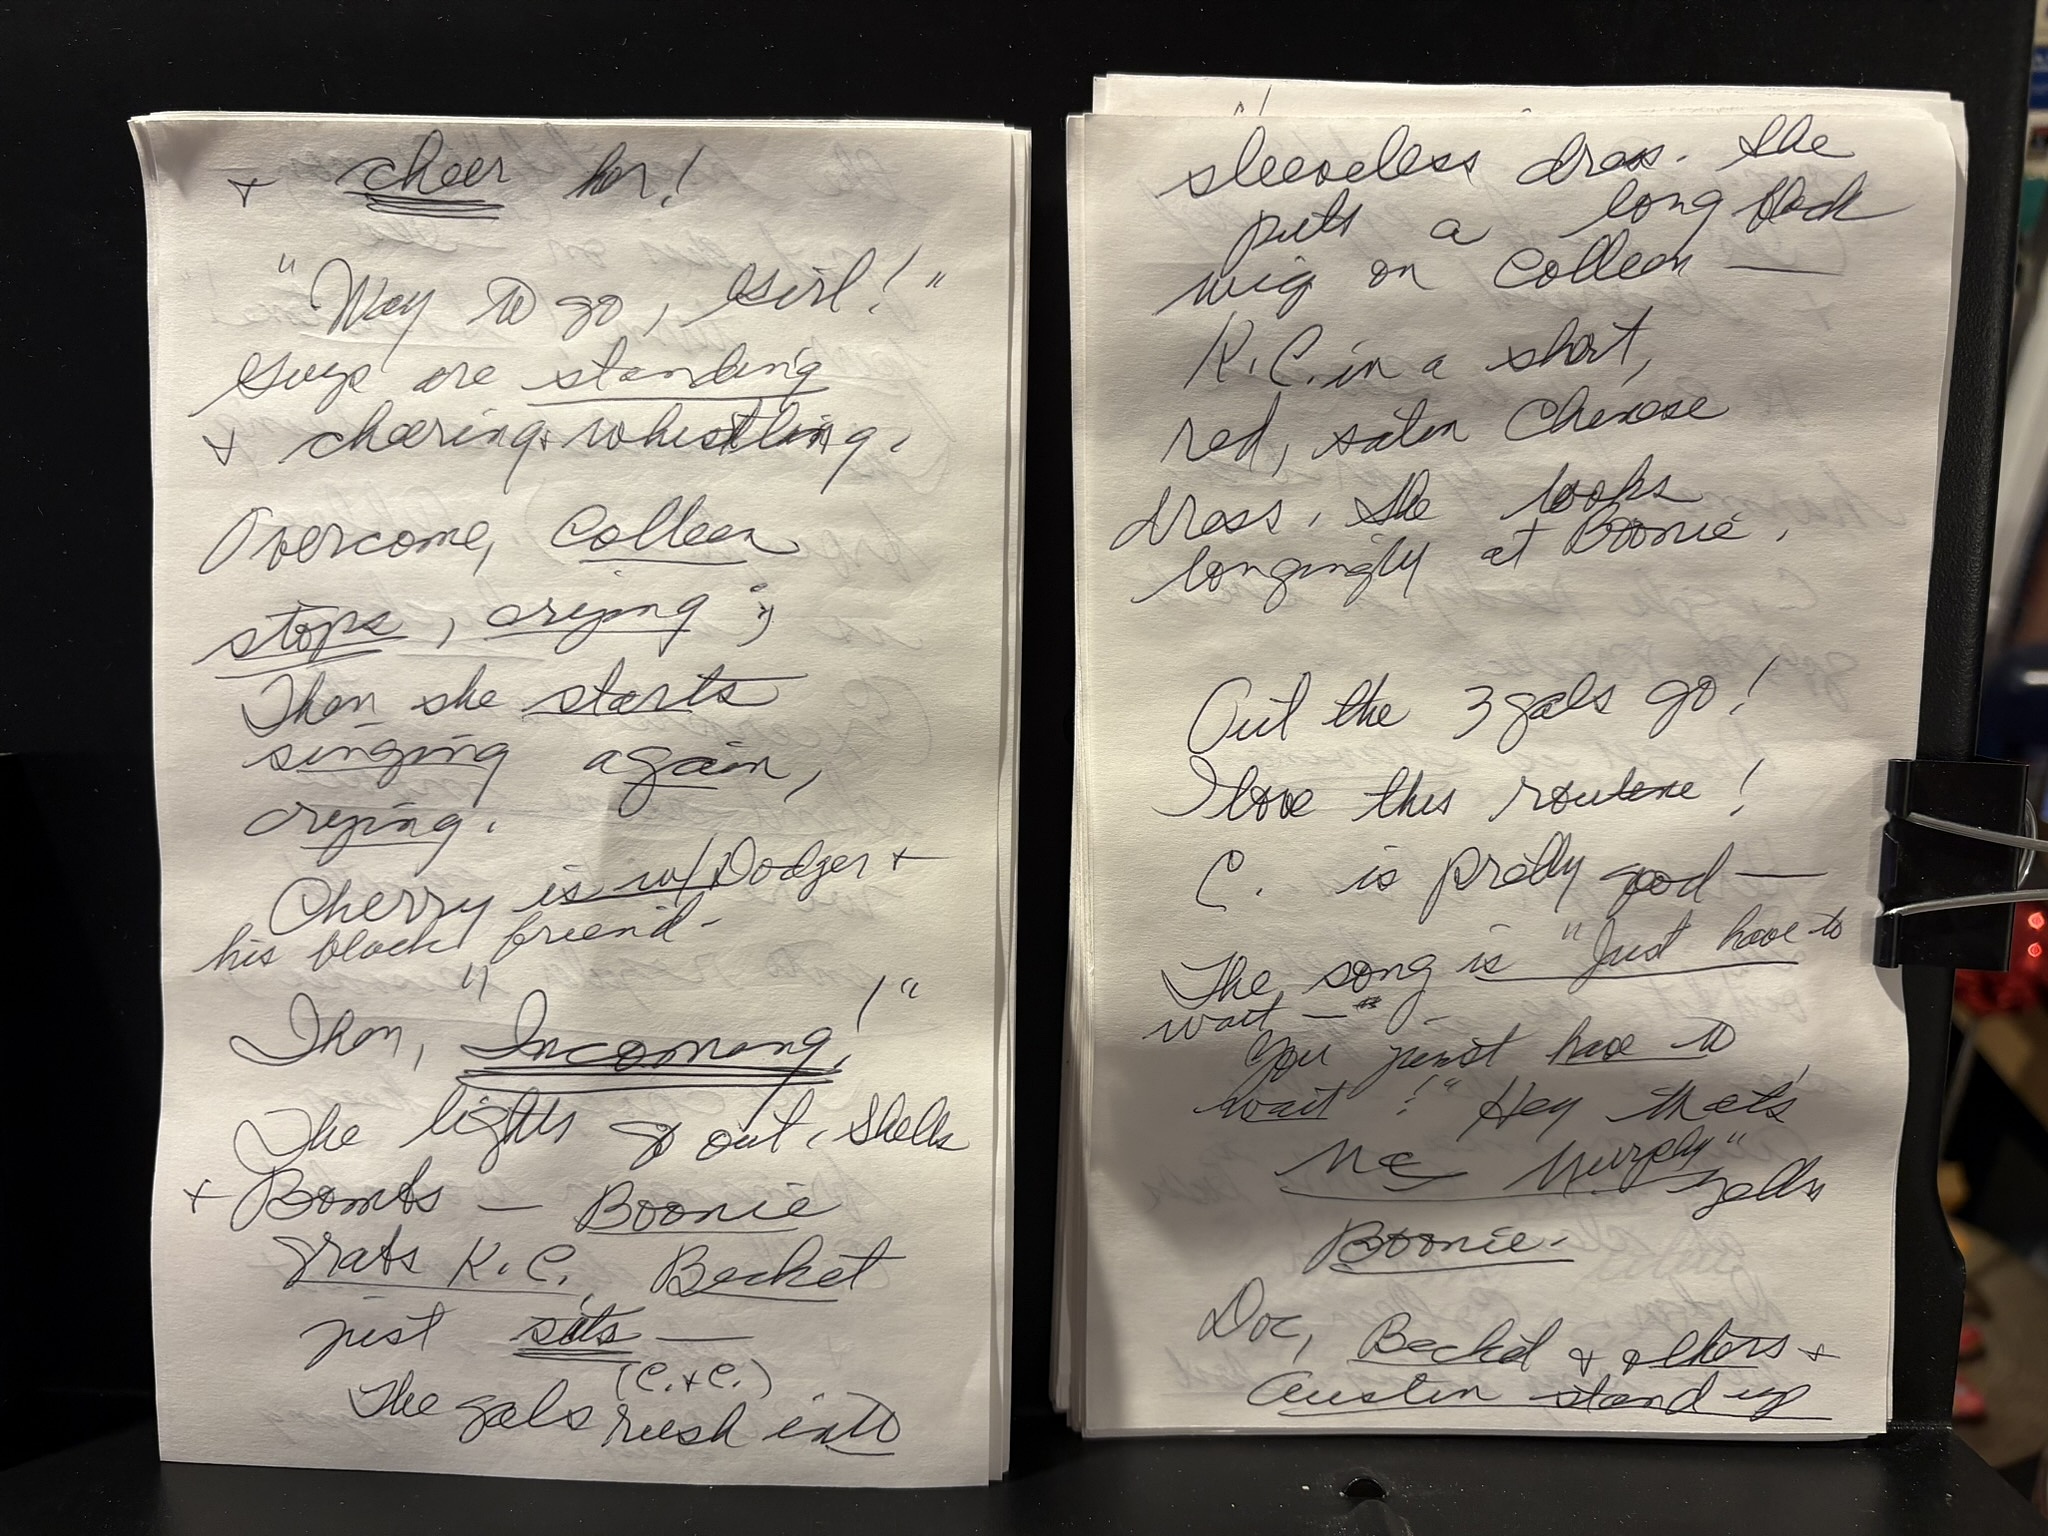 + cheer her!
"Way to go, Girl!"
Guys are standing
+ cheering + whistling.
Overcome, Colleen
stops, crying;
Then she starts
singing again,
crying.
Cherry is w/ Dodger +
his black friend -
Then, "Incoming!"
The lights go out, shells
+ Bombs — Boonie
grabs K.C. Becket
just sits —
(C. + C.)
The gals rush into
sleeveless dress. She
puts a long black
wig on Colleen —
K.C. in a short,
red, satin Chinese
dress. She looks
longingly at Boonie.
Out the 3 gals go!
I love this routine!
C. is pretty good —
The song is "Just have to
wait —
You just have to
wait!" "Hey that's
Mc Murphy" yells
Boonie.
Doc, Becket + others +
Austin stand up